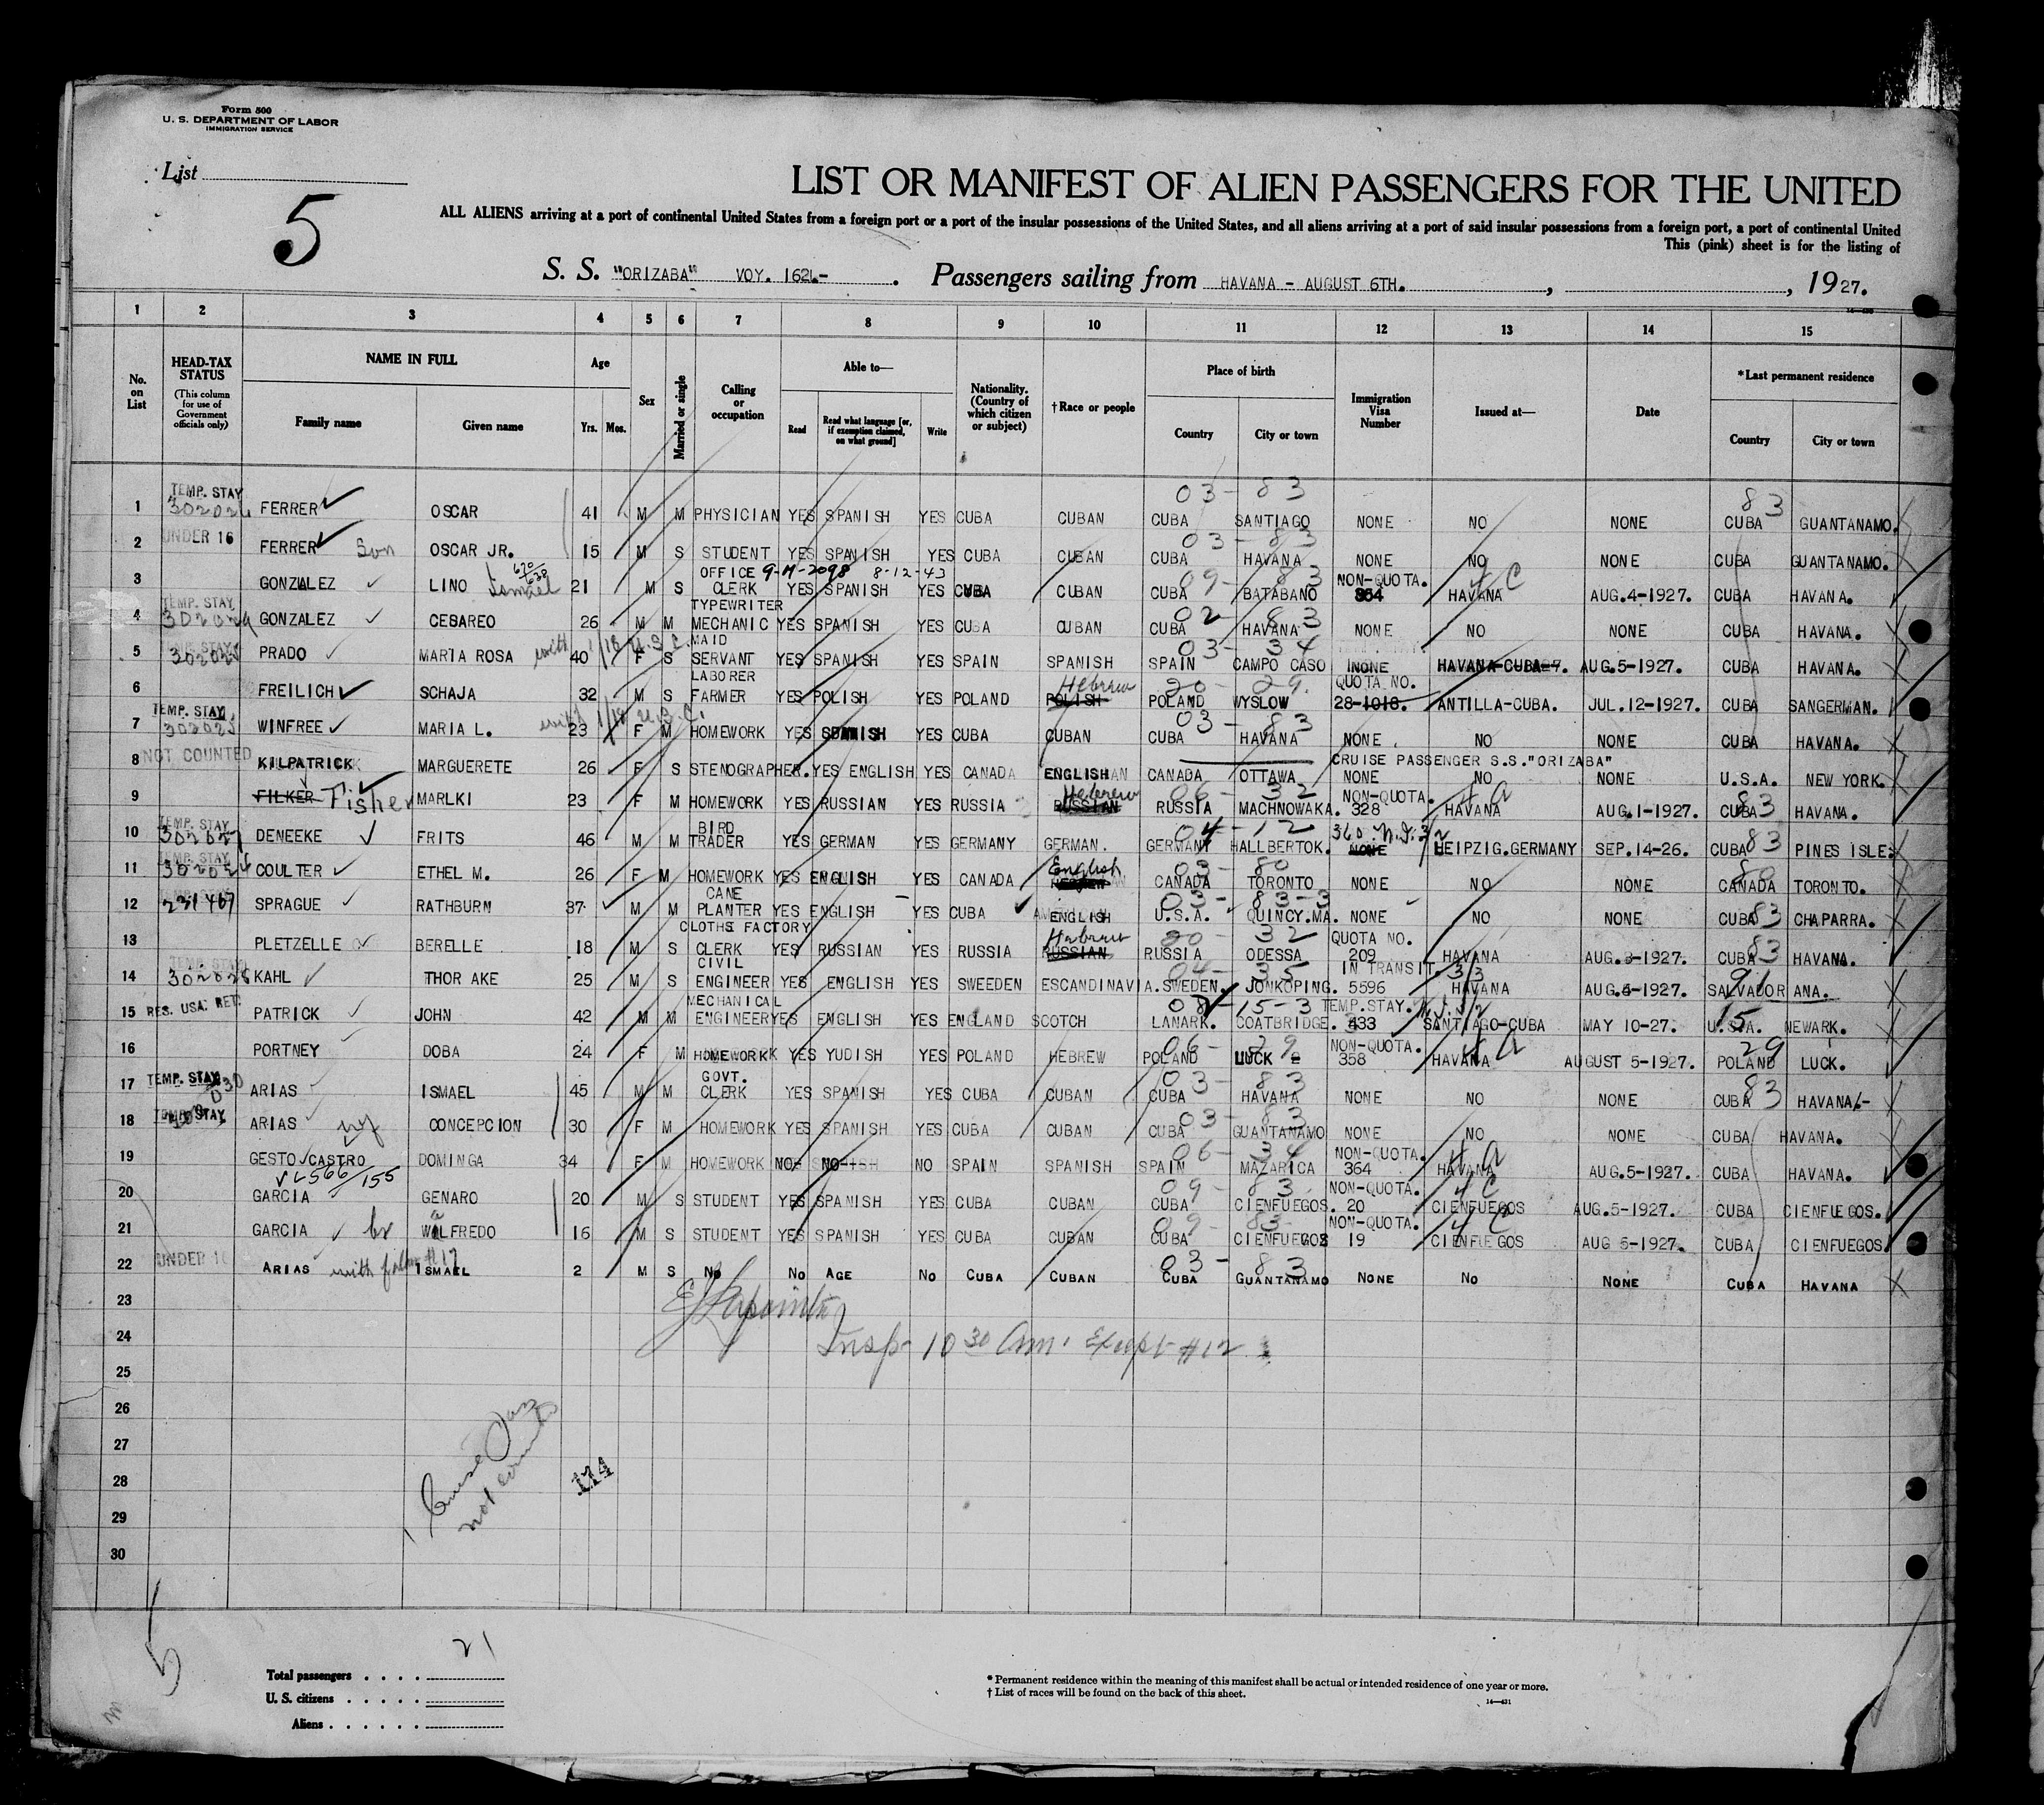 Form 500
U. S. DEPARTMENT OF LABOR
IMMIGRATION SERVICE
List
5
LIST OR MANIFEST OF ALIEN PASSENGERS FOR THE UNITED
ALL ALIENS arriving at a port of continental United States from a foreign port or a port of the insular possessions of the United States, and all aliens arriving at a port of said insular possessions from a foreign port, a port of continental United
This (pink) sheet is for the listing of
S. S. "ORIZABA" VOY. 162L- . Passengers sailing from HAVANA - AUGUST 6TH. , , 1927.
1 2 3 4 5 6 7 8 9 10 11 12 13 14 15
No. on List HEAD-TAX STATUS (This column for use of Government officials only) NAME IN FULL Family name Given name Age Yrs. Mos. Sex Married or single Calling or occupation Able to— Read Read what language [or, if exemption claimed, on what ground] Write Nationality. (Country of which citizen or subject) †Race or people Place of birth Country City or town Immigration Visa Number Issued at— Date *Last permanent residence Country City or town
1 TEMP. STAY 302026 FERRER OSCAR 41 M M PHYSICIAN YES SPANISH YES CUBA CUBAN CUBA 03-83 SANTIAGO NONE NO NONE CUBA 83 GUANTANAMO.
2 UNDER 16 FERRER Son OSCAR JR. 15 M S STUDENT YES SPANISH YES CUBA CUBAN CUBA 03-83 HAVANA NONE NO NONE CUBA GUANTANAMO.
3 GONZALEZ LINO Ismael 670/630 21 M S OFFICE CLERK 9-M-2098 8-12-43 YES SPANISH YES CUBA CUBAN CUBA 09-83 BATABANO NON-QUOTA. 354 HAVANA 4C AUG.4-1927. CUBA HAVANA.
4 TEMP. STAY 302029 GONZALEZ CESAREO 26 M M TYPEWRITER MECHANIC YES SPANISH YES CUBA CUBAN CUBA 02-83 HAVANA NONE NO NONE CUBA HAVANA.
5 302028 PRADO MARIA ROSA with 1/18 U.S.C. 40 F S MAID SERVANT YES SPANISH YES SPAIN SPANISH SPAIN 03-34 CAMPO CASO NONE HAVANA-CUBA-7. AUG.5-1927. CUBA HAVANA.
6 FREILICH SCHAJA 32 M S LABORER FARMER YES POLISH YES POLAND POLISH Hebrew POLAND 20-29. WYSLOW QUOTA NO. 28-1018. ANTILLA-CUBA. JUL.12-1927. CUBA SANGERMAN.
7 TEMP. STAY 302025 WINFREE MARIA L. with 1/18 U.S.C. 23 F M HOMEWORK YES SPANISH YES CUBA CUBAN CUBA 03-83 HAVANA NONE NO NONE CUBA HAVANA.
8 NOT COUNTED KILPATRICK MARGUERETE 26 F S STENOGRAPHER. YES ENGLISH YES CANADA ENGLISH CANADA OTTAWA CRUISE PASSENGER S.S."ORIZABA" NONE NO NONE U.S.A. NEW YORK.
9 FILKER Fisher MARLKI 23 F M HOMEWORK YES RUSSIAN YES RUSSIA RUSSIAN Hebrew RUSSIA 06-32 MACHNOWAKA. NON-QUOTA. 328 HAVANA 4a AUG.1-1927. CUBA 83 HAVANA.
10 TEMP. STAY 302027 DENEEKE FRITS 46 M M BIRD TRADER YES GERMAN YES GERMANY GERMAN. GERMANY 04-12 HALLBERTOK. NONE 360 N.I. 3/2 LEIPZIG.GERMANY SEP.14-26. CUBA 83 PINES ISLE.
11 TEMP. STAY 302024 COULTER ETHEL M. 26 F M HOMEWORK YES ENGLISH YES CANADA English CANADA 03-80 TORONTO NONE NO NONE CANADA 80 TORONTO.
12 231467 SPRAGUE RATHBURN 37 M M CANE PLANTER YES ENGLISH YES CUBA ENGLISH U.S.A. 03-83-3 QUINCY.MA. NONE NO NONE CUBA 83 CHAPARRA.
13 PLETZELLE BERELLE 18 M S CLOTHS FACTORY CLERK YES RUSSIAN YES RUSSIA RUSSIAN Hebrew RUSSIA 20-32 ODESSA QUOTA NO. 209 HAVANA AUG.3-1927. CUBA 83 HAVANA.
14 302028 KAHL THOR AKE 25 M S CIVIL ENGINEER YES ENGLISH YES SWEEDEN ESCANDINAVIA. SWEDEN. 04-35 JONKOPING. IN TRANSIT. 5596 HAVANA 3/3 AUG.6-1927. SALVADOR 91 ANA.
15 RES. USA. RET. PATRICK JOHN 42 M M MECHANICAL ENGINEER YES ENGLISH YES ENGLAND SCOTCH LANARK. 08-15-3 COATBRIDGE. TEMP.STAY. 433 N.I. 3/2 SANTIAGO-CUBA MAY 10-27. U.S.A. 15 NEWARK.
16 PORTNEY DOBA 24 F M HOMEWORK YES YUDISH YES POLAND HEBREW POLAND 06-29 LUCK NON-QUOTA. 358 HAVANA 4a AUGUST 5-1927. POLAND 29 LUCK.
17 TEMP. STAY ARIAS ISMAEL 45 M M GOVT. CLERK YES SPANISH YES CUBA CUBAN CUBA 03-83 HAVANA NONE NO NONE CUBA 83 HAVANA.-
18 TEMP. STAY ARIAS wf CONCEPCION 30 F M HOMEWORK YES SPANISH YES CUBA CUBAN CUBA 03-83 GUANTANAMO NONE NO NONE CUBA HAVANA.
19 GESTO CASTRO DOMINGA 34 F M HOMEWORK NO NO NO SPAIN SPANISH SPAIN 06-34 MAZARICA NON-QUOTA. 364 HAVANA 4a AUG.5-1927. CUBA HAVANA.
20 GARCIA V2566/155 GENARO 20 M S STUDENT YES SPANISH YES CUBA CUBAN CUBA 09-83 CIENFUEGOS. NON-QUOTA. 20 CIENFUEGOS 4C AUG.5-1927. CUBA CIENFUEGOS.
21 GARCIA br WILFREDO 16 M S STUDENT YES SPANISH YES CUBA CUBAN CUBA 09-83 CIENFUEGOS NON-QUOTA. 19 CIENFUEGOS 4C AUG 5-1927. CUBA CIENFUEGOS
22 UNDER 16 ARIAS with father #17 ISMAEL 2 M S NO NO AGE NO CUBA CUBAN CUBA 03-83 GUANTANAMO NONE NO NONE CUBA HAVANA
23
24 Insp- 10 30 Am. Except #12
25
26
27
28 Cruise Pass not counted 114
29
30
5
Total passengers . . . . 21
U. S. citizens . . . . .
Aliens . . . . . .
* Permanent residence within the meaning of this manifest shall be actual or intended residence of one year or more.
† List of races will be found on the back of this sheet.
14—431